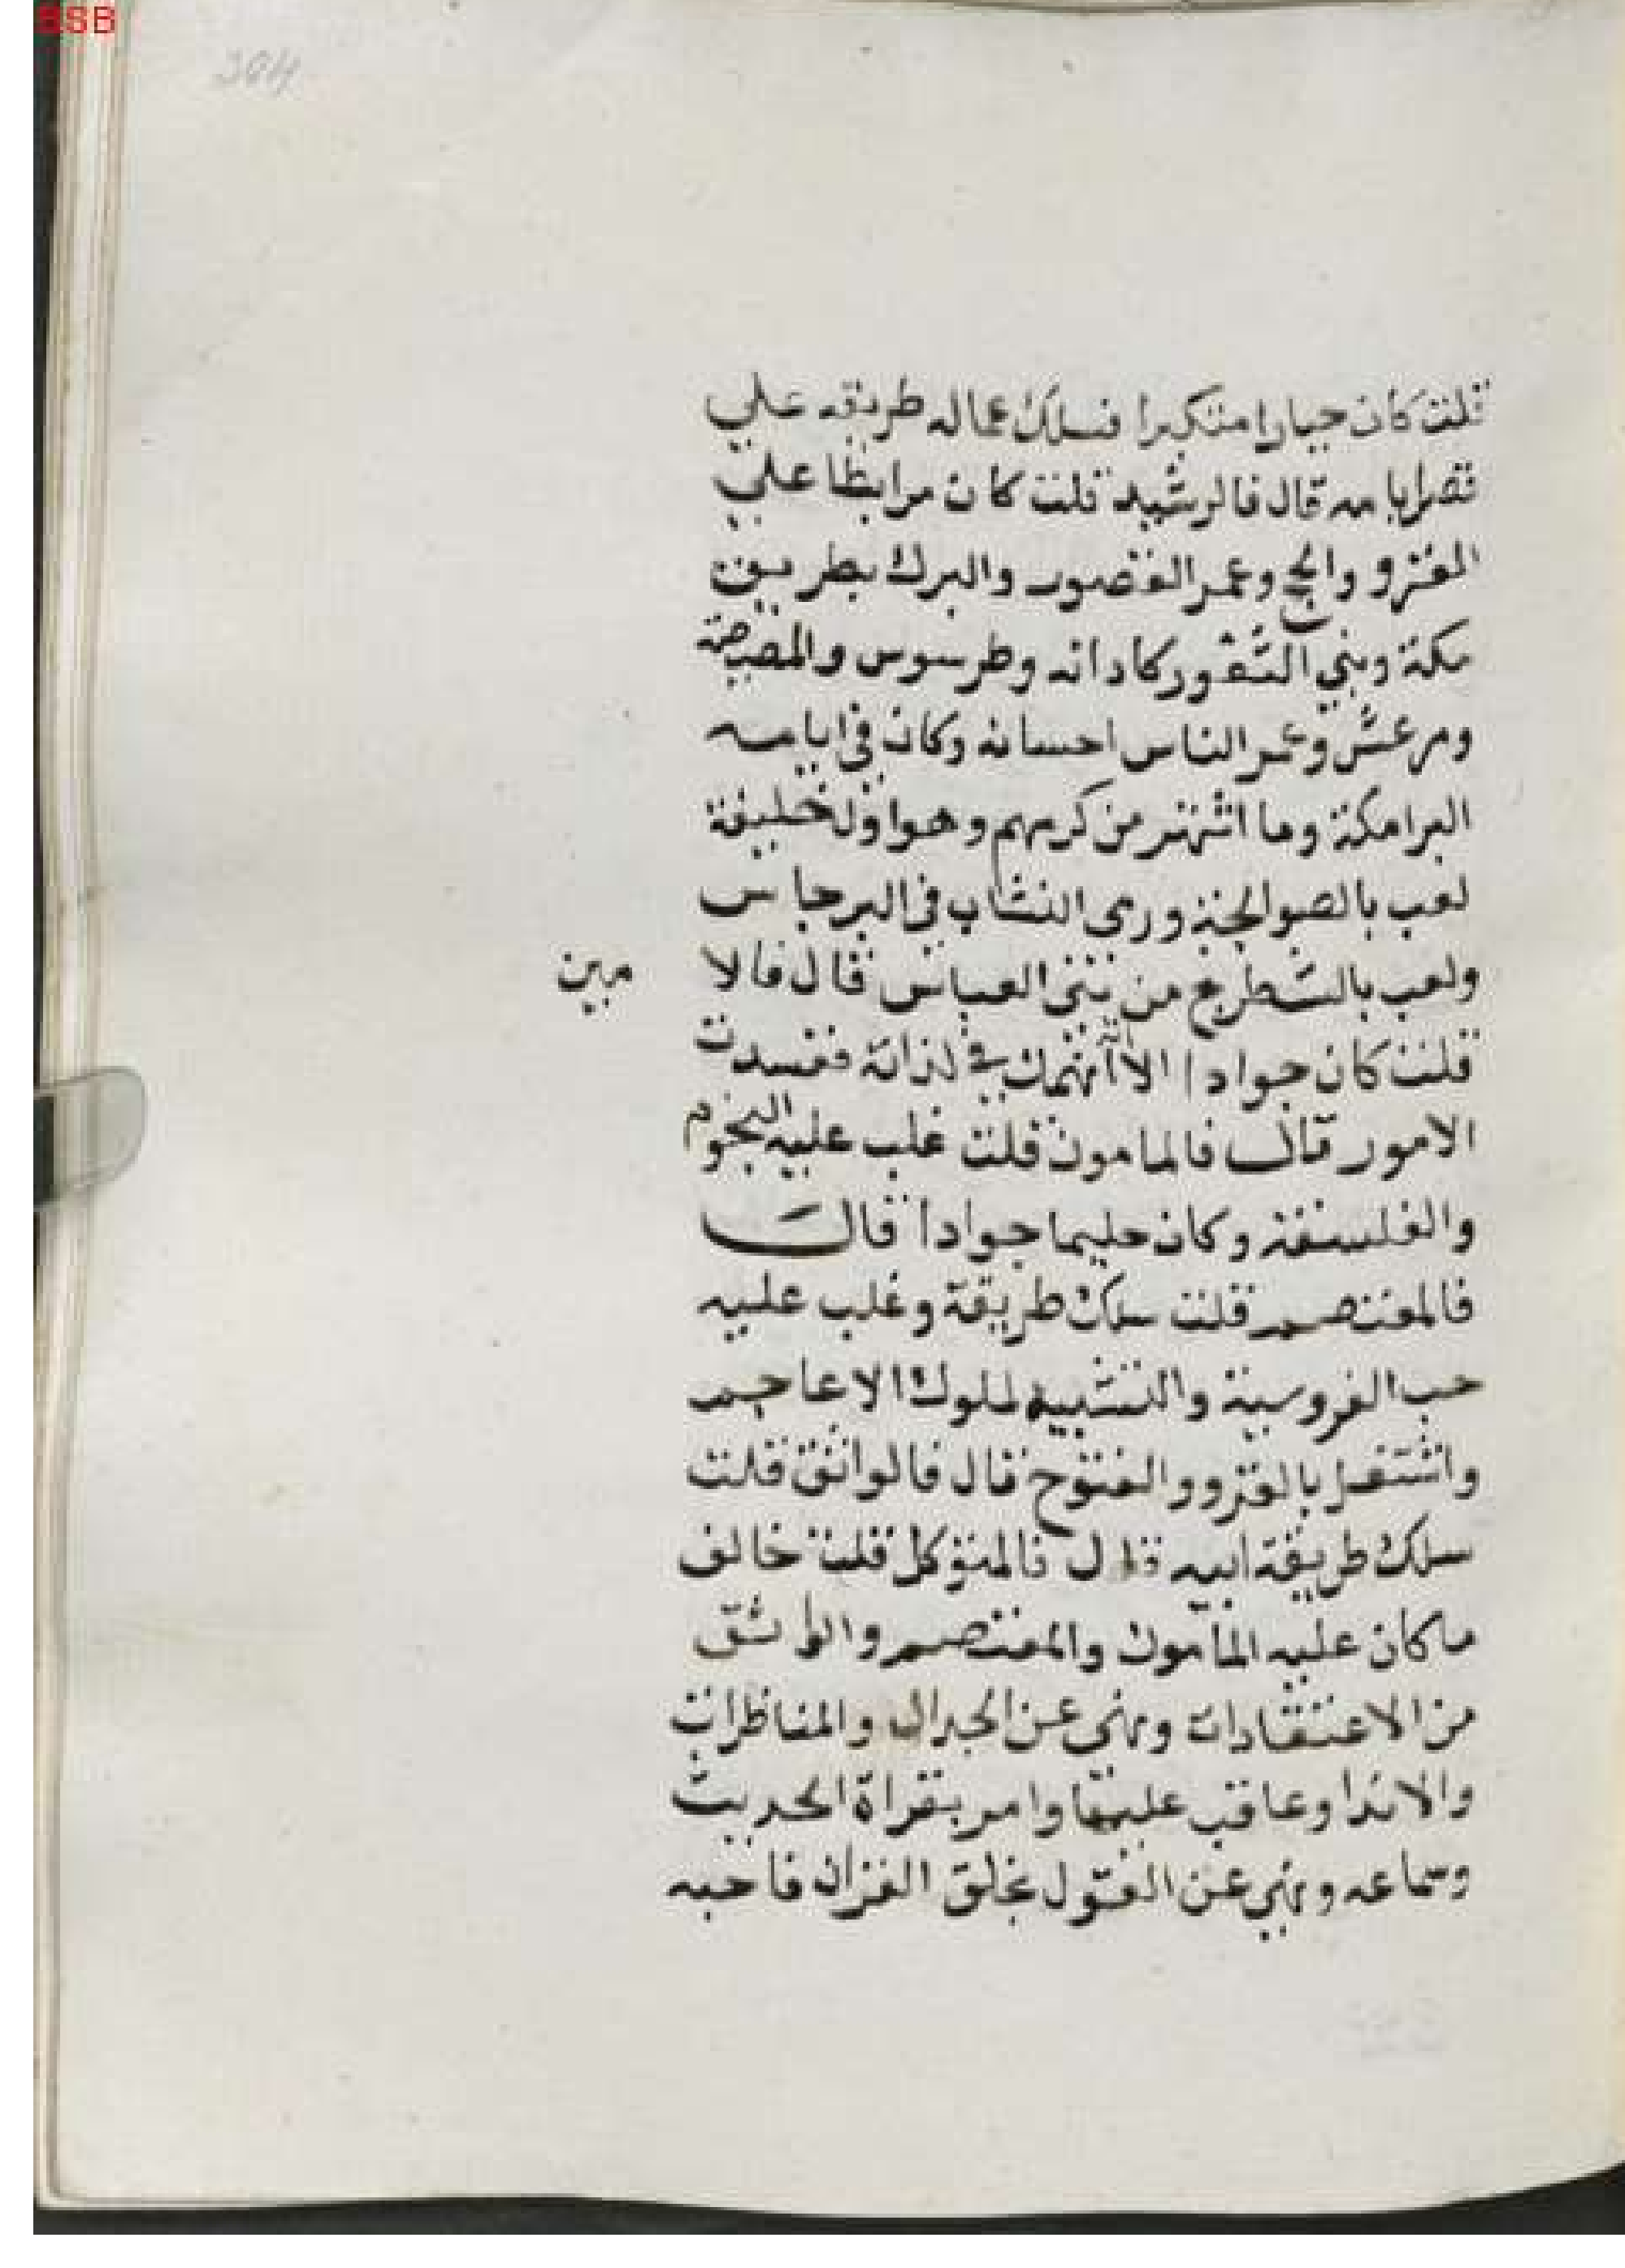 BSB
304
قلت كان جبارا متكبرا فسلك عماله طريقه علي
قصر ايامه قال فالرشيد قلت كان مرابطا علي
الغزو والحج وعمر القصور والبرك بطريق
مكة وبني الثغور كادانه وطرسوس والمصيصة
ومرعش وعمر الناس احسانه وكان في ايامه
البرامكة وما اشتهر من كرمهم وهو اول خليفة
لعب بالصوالجة ورمى النشاب في البرجاس
ولعب بالشطرنج من بني العباس قال فالا
مين
قلت كان جوادا الا انه انهمك في لذاته ففسدت
الامور قال فالمامون قلت غلب عليه النجوم
والفلسفة وكان حليما جوادا قال
فالمعتصم قلت سلك طريقة وغلب عليه
حب الفروسية والتشبيه لملوك الاعاجم
واشتغل بالغزو والفتوح قال فالواثق قلت
سلك طريقة ابيه قال فالمتوكل قلت خالف
ماكان عليه المأمون والمعتصم والواثق
من الاعتقادات ونهي عن الجدال والمناظرات
والاندا وعاقب عليها وامر بقراة الحديث
وسماعه ونهي عن القول بخلق القران فاحبه